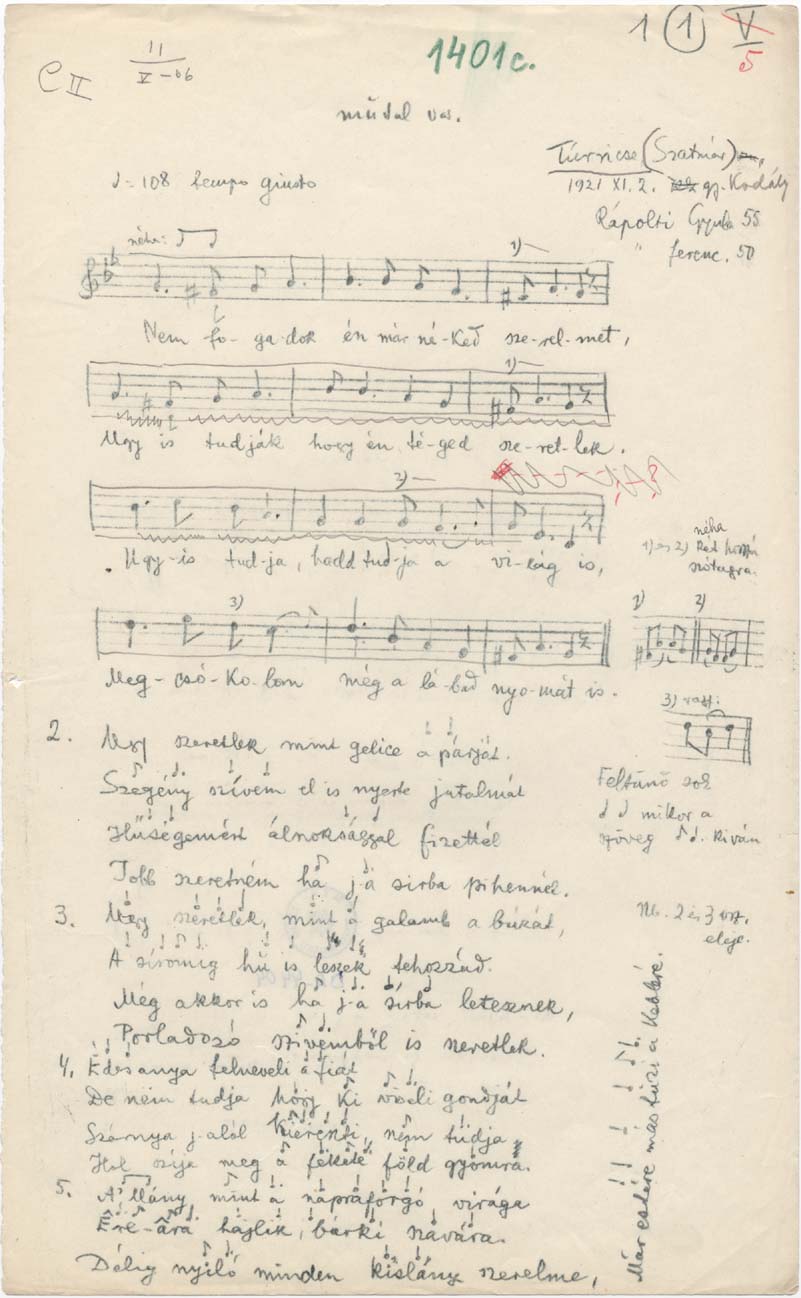 C II
11
V-06
1401c.
1 1 V
5
műdal var.
Túrricse (Szatmár)
1921 XI. 2. gy. Kodály
Rápolti Gyula 55
" Ferenc. 50
♩ = 108 tempo giusto
néha:
1)
Nem fo-ga-dok én már né-ked sze-rel-met,
1)
Ugy is tudják hogy én té-ged sze-ret-lek.
2)
Ugy-is tud-ja, hadd tud-ja a vi-lág is,
néha
1) és 2) két hosszú
szótagra.
3)
Meg-csó-ko-lom még a lá-bad nyo-mát is.
1) 2)
3) vagy:
2. Ugy szeretlek mint gelice a párját.
Szegény szívem el is nyerte jutalmát
Hűségemért álnoksággal fizettél
Jobb szeretném ha j-a sirba pihennél.
Feltünő sok
♩ ♩ mikor a
szöveg ♪ ♩. kiván
3. Ugy szeretlek, mint a galamb a búzát,
A síromig hű is leszek tehozzád.
Még akkor is ha j-a sírba letesznek,
Porladozó szivemből is szeretlek.
Nb. 2 és 3 vsz.
eleje.
4. Édesanya felneveli a fiát
De nem tudja hogy ki viseli gondját
Szárnya j-alól kiereszti, nem tudja
Hol szíja meg a fekete föld gyomra.
5. A' lány mint a napraforgó virága
Ére-ára hajlik, bárki szavára.
Délig nyiló minden kislány szerelme,
Már estére más tűzi a keblére.